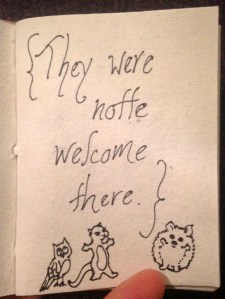 {They were
notte
welcome
there.}